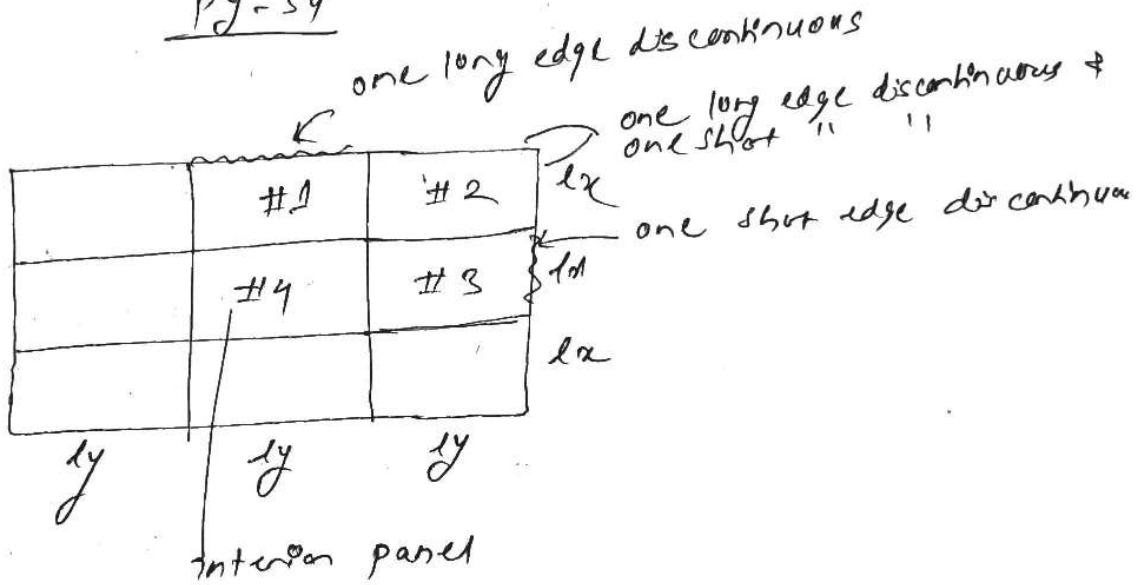 Pg-34
one long edge discontinuous
one long edge discontinuous &
one shot " "
lx
#1 #2
one shot edge discontinuous
#4 #3
lx
lx
ly ly ly
interior panel